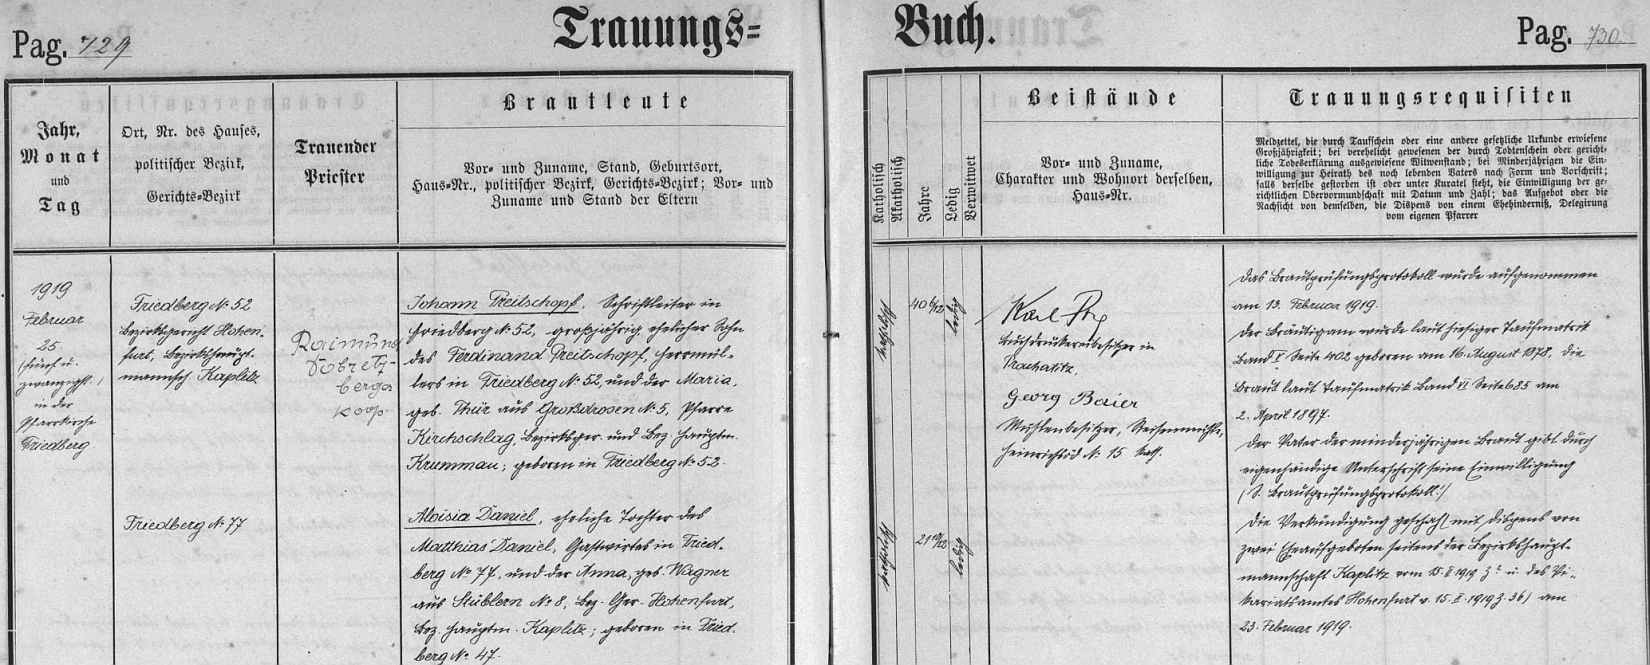 Pag. 729
Trauungs=
Jahr,
Monat
und
Tag
Ort, Nr. des Hauses,
politischer Bezirk,
Gerichts=Bezirk
Trauender
Priester
Brautleute
Vor= und Zuname, Stand, Geburtsort,
Haus=Nr., politischer Bezirk, Gerichts=Bezirk; Vor= und
Zuname und Stand der Eltern
1919
Februar
25.
(fünf u.
zwanzigst.)
in der
Pfarrkirche
Friedberg
Friedberg No 52
Bezirksgericht Hohen-
furt, Bezirkshaupt-
mannsch. Kaplitz
Raimund
Dobretz-
berger
Koop.
Johann Preitschopf, Schriftleiter in
Friedberg No 52, großjährig, ehelicher Sohn
des Ferdinand Preitschopf, Herrmül-
lers in Friedberg No 52, und der Maria,
geb. Thür aus Großdrosen No 5, Pfarre
Kirchschlag, Bezirksger. und Bez. Hauptm.
Krummau; geboren in Friedberg No 52.
Friedberg No 77
Aloisia Daniel, eheliche Tochter des
Matthias Daniel, Gastwirtes in Fried-
berg No 77, und der Anna, geb. Wagner
aus Stüblern No 8, Bez. Ger. Hohenfurt,
Bez. Hauptm. Kaplitz; geboren in Fried-
berg No 47.
Buch.
Pag. 730
Katholisch
Akatholisch
Jahre
Ledig
Verwitwet
Beistände
Vor= und Zuname,
Charakter und Wohnort derselben,
Haus=Nr.
Trauungsrequisiten
Meldzettel, die durch Taufschein oder eine andere gesetzliche Urkunde erwiesene
Großjährigkeit; bei verehelicht gewesenen der durch Todtenschein oder gericht-
liche Todeserklärung ausgewiesene Witwenstand; bei Minderjährigen die Ein-
willigung zur Heirath des noch lebenden Vaters nach Form und Vorschrift;
falls derselbe gestorben ist oder unter Kuratel steht, die Einwilligung der ge-
richtlichen Obervormundschaft mit Datum und Zahl; das Aufgebot oder die
Nachsicht von demselben, die Dispens von einem Ehehinderniß, Delegirung
vom eigenen Pfarrer
katholisch
40 6/12
ledig
Karl
Buchdruckereibesitzer in
Prachatitz.
Georg Baier
Mühlenbesitzer,
Heinrichsöd No 15
katholisch
21 10/12
ledig
Das Brautprüfungsprotokoll wurde aufgenommen
am 13. Februar 1919.
Der Bräutigam wurde laut hiesiger Taufmatrik
Band V Seite 402 geboren am 16. August 1878, die
Braut laut Taufmatrik Band VI Seite 685 am
2. April 1897.
Der Vater der minderjährigen Braut gibt durch
eigenhändige Unterschrift seine Einwilligung
(S. Brautprüfungsprotokoll!)
Die Verkündigung geschah mit Dispens von
zwei Eheaufgeboten seitens der Bezirkshaupt-
mannschaft Kaplitz vom 15. II 1919 u. des Vi-
kariatsamtes Hohenfurt v. 15. II. 1919 Z. 36) am
23. Februar 1919.